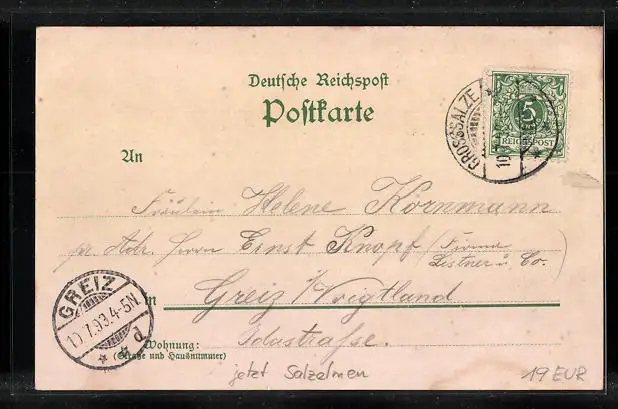 Deutsche Reichspost
Postkarte
GROSSSALZE
5
REICHSPOST
An
Fräulein Helene Kornmann
pr. Adr. Herrn Ernst Knopf (Firma
Leistner & Co.)
in Greiz i/Voigtland
GREIZ
10.7.93.4-5N.
d
Wohnung: Idastraße.
(Straße und Hausnummer)
jetzt Salzelmen
19 EUR